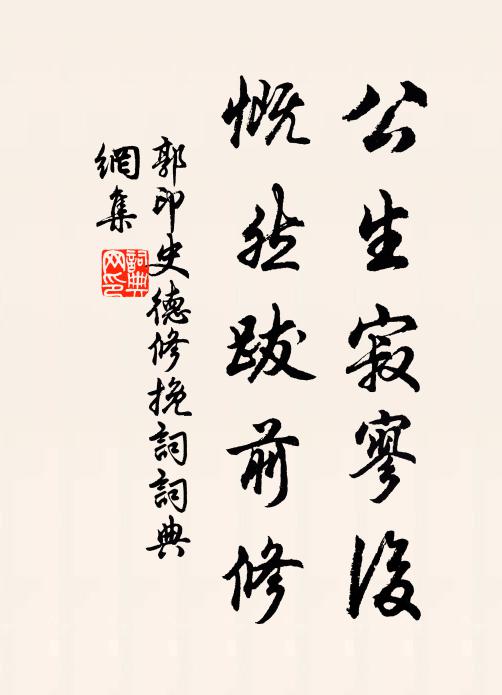 公生寂寥後
慨然跋前修
郭印史德修挽詞詞典
網集
詞典網印